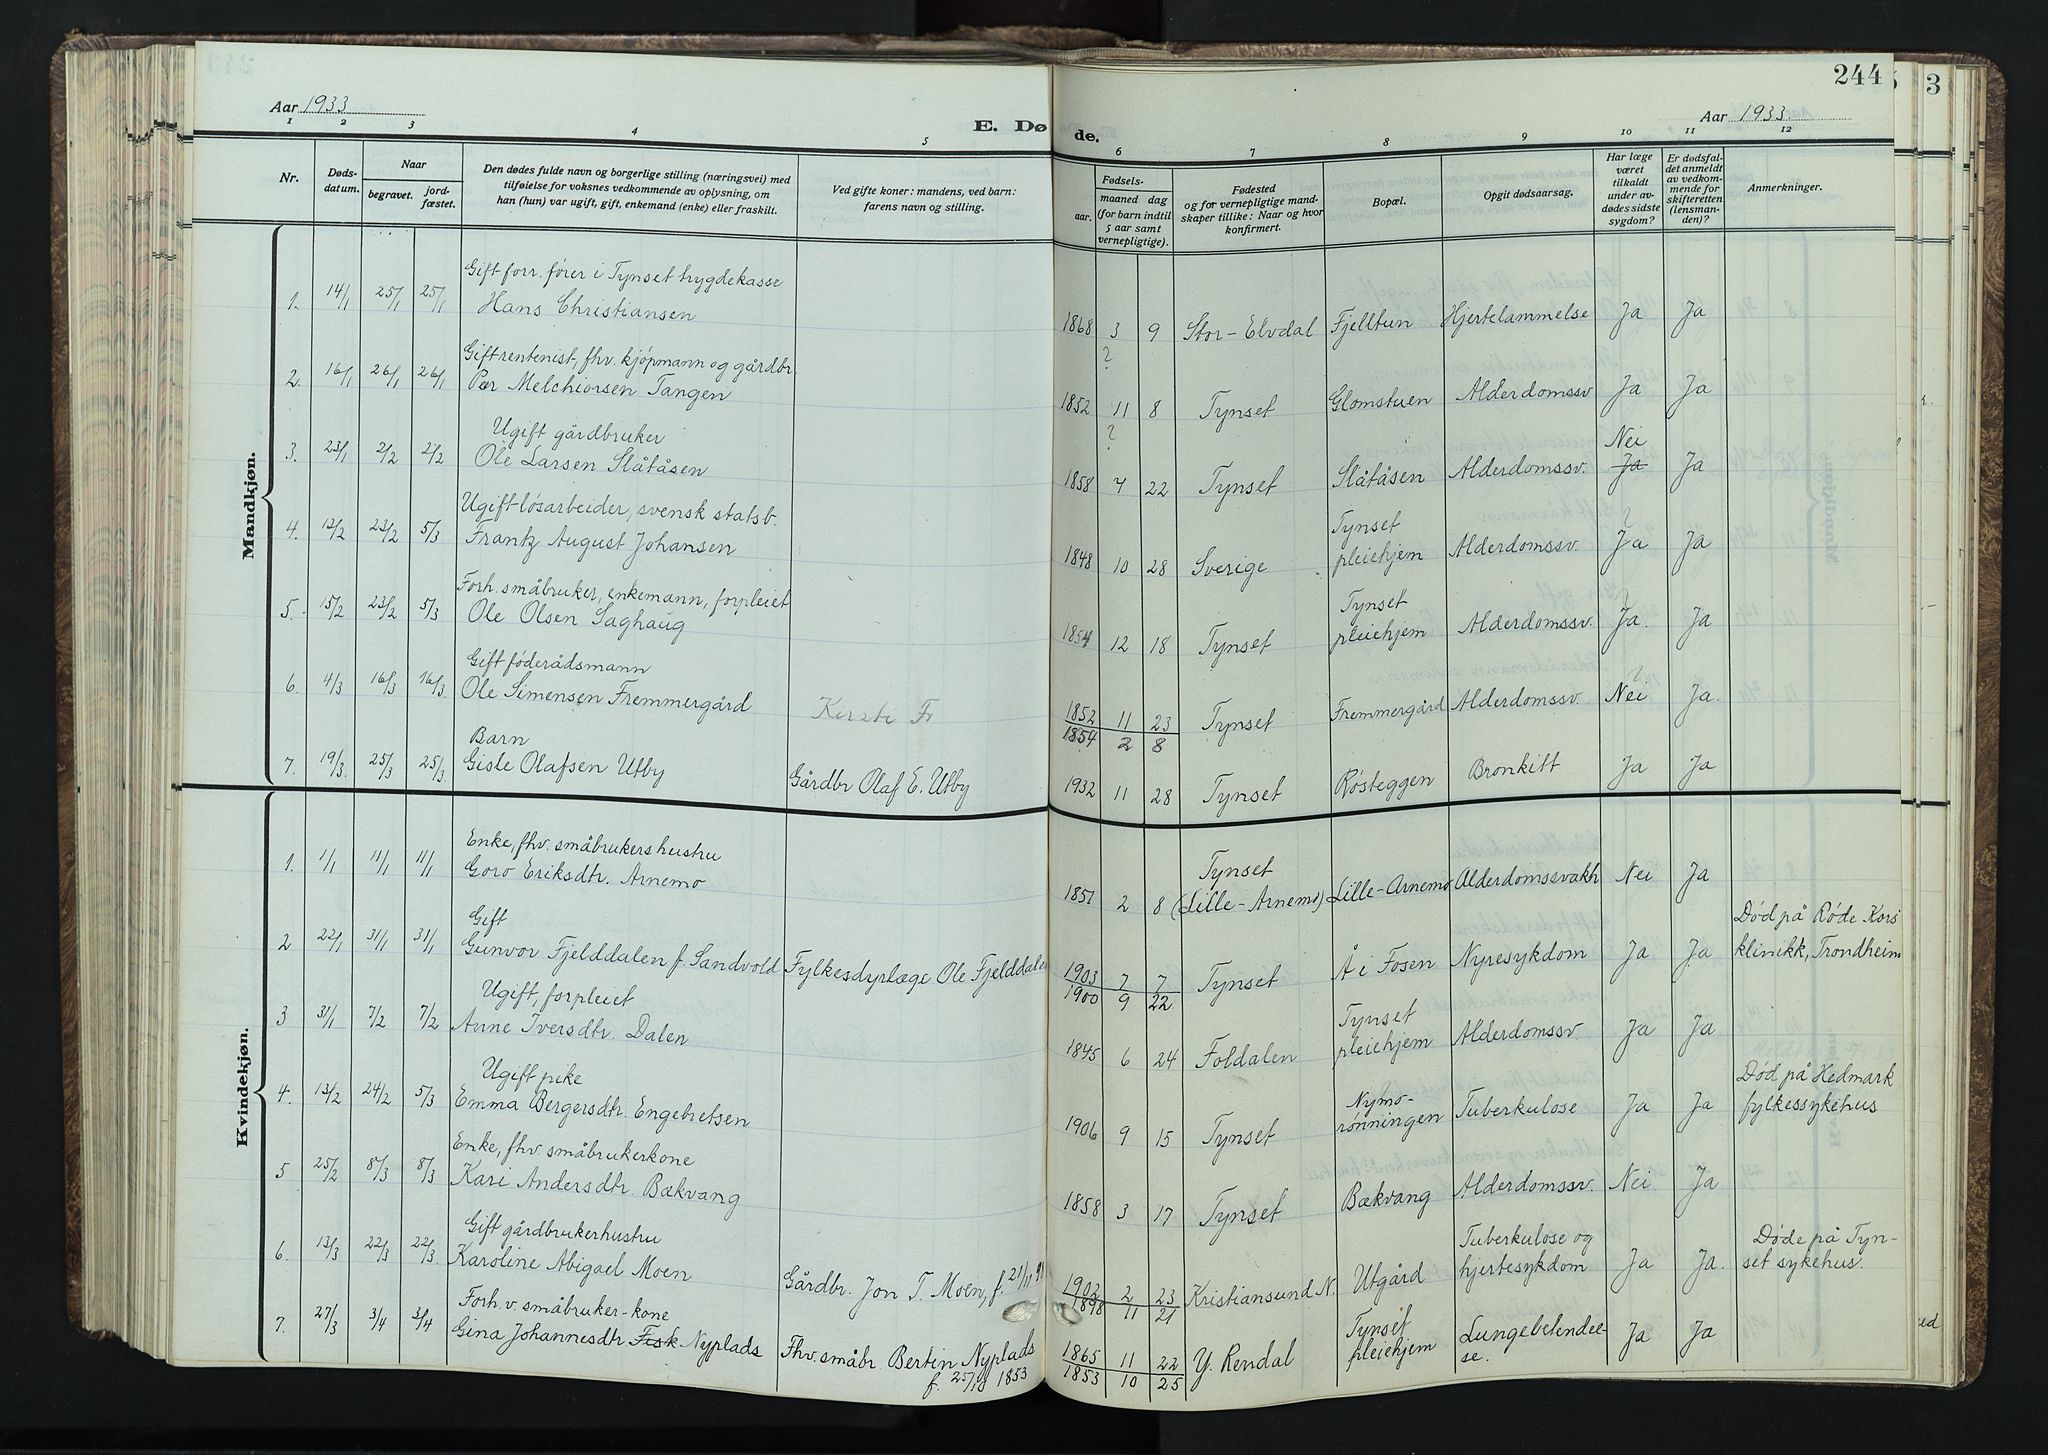 244
3
Aar 1933
Aar 1933.
E. Dø de.
1 2 3 4 5 6 7 8 9 10 11 12
Nr.
Døds-
datum.
Naar
begravet.
jord-
fæstet.
Den dødes fulde navn og borgerlige stilling (næringsvei) med
tilføielse for voksnes vedkommende av oplysning, om
han (hun) var ugift, gift, enkemand (enke) eller fraskilt.
Ved gifte koner: mandens, ved barn:
farens navn og stilling.
Fødsels-
aar.
maaned dag
(for barn indtil
5 aar samt
vernepligtige).
Fødested
og for vernepligtige mand-
skaper tillike: Naar og hvor
konfirmert.
Bopæl.
Opgit dødsaarsag.
Har læge
været
tilkaldt
under av-
dødes sidste
sygdom?
Er dødsfal-
det anmeldt
av vedkom-
mende for
skifteretten
(lensman-
den)?
Anmerkninger.
Mandkjøn.
Gift forr. fører i Tynset trygdekasse
1. 14/1 25/1 25/1 Hans Christiansen 1868 3 9 Stor-Elvdal Fjelltun Hjertelammelse Ja Ja
?
Gift rentenist, fhv. kjøpmann og gårdbr.
2. 16/1 26/1 26/1 Per Melchiorsen Tangen 1852 11 8 Tynset Glomstuen Alderdomssv Ja Ja
?
Ugift gårdbruker
Nei
3. 23/1 2/2 2/2 Ole Larsen Slåtåsen 1858 7 22 Tynset Slåtåsen Alderdomssv. Ja Ja
Ugift løsarbeider, svensk statsb.
Tynset
?
4. 12/2 23/2 5/3 Frantz August Johansen 1848 10 28 Sverige pleiehjem Alderdomssv. Ja Ja
Forh. småbruker, enkemann, forpleiet
Tynset
?
5. 15/2 23/2 5/3 Ole Olsen Saghaug 1854 12 18 Tynset pleiehjem Alderdomssv. Ja. Ja
Gift føderådsmann
?
6. 4/3 16/3 16/3 Ole Simensen Fremmergård Kersti Fr 1852 11 23 Tynset Fremmergård Alderdomssv. Nei Ja.
1854 2 8
Barn
7. 19/3. 25/3 25/3. Gisle Olafsen Utby Gårdbr Olaf E. Utby 1932 11 28 Tynset Røsteggen Bronkitt Ja Ja
Kvindekjøn.
Enke, fhv. småbrukers hustru
Tynset
1. 1/1 11/1 11/1 Goro Eriksdtr. Arnemo 1851 2 8 (Lille-Arnemo) Lille-Arnemo Alderdomssvakh Nei Ja
Gift
Død på Røde Kors
2 22/1 31/1 31/1 Gunvor Fjelddalen f. Sandvold Fylkesdyrlæge Ole Fjelddalen 1903 7 7 Tynset Å i Fosen Nyresykdom Ja Ja klinikk, Trondheim
1900 9 22
Ugift, forpleiet
Tynset
3 31/1 7/2 7/2 Anne Iversdtr. Dalen 1845 6 24 Foldalen pleiehjem Alderdomssv Ja Ja
Ugift pike
Nymo-
Død på Hedmark
4. 13/2 24/2 5/3 Emma Bergersdtr. Engebretsen 1906 9 15 Tynset rønningen Tuberkulose Ja Ja fylkessykehus
Enke, fhv. småbrukerkone
5 25/2 8/3 8/3 Kari Andersdtr. Bækvang 1858 3 17 Tynset Bækvang Alderdomssv. Nei Ja
Gift gårdbrukerhustru
Tuberkulose og
Døde på Tyn-
6. 13/3 22/3 22/3. Karoline Abigael Moen Gårdbr. Jon T. Moen, f. 21/11 1902 2 23 Kristiansund N. Utgård hjertesykdom Ja Ja. set sykehus.
1898 11 21
Forh. v. småbruker-kone
Tynset
7. 27/3 3/4 3/4 Gina Johannesdtr. Fisk Nyplads Fhv. småbr Bertin Nyplads 1865 11 22 Y. Rendal pleiehjem Lungebetendel- Ja Ja
f. 25/10 1853 1853 10 25 se.